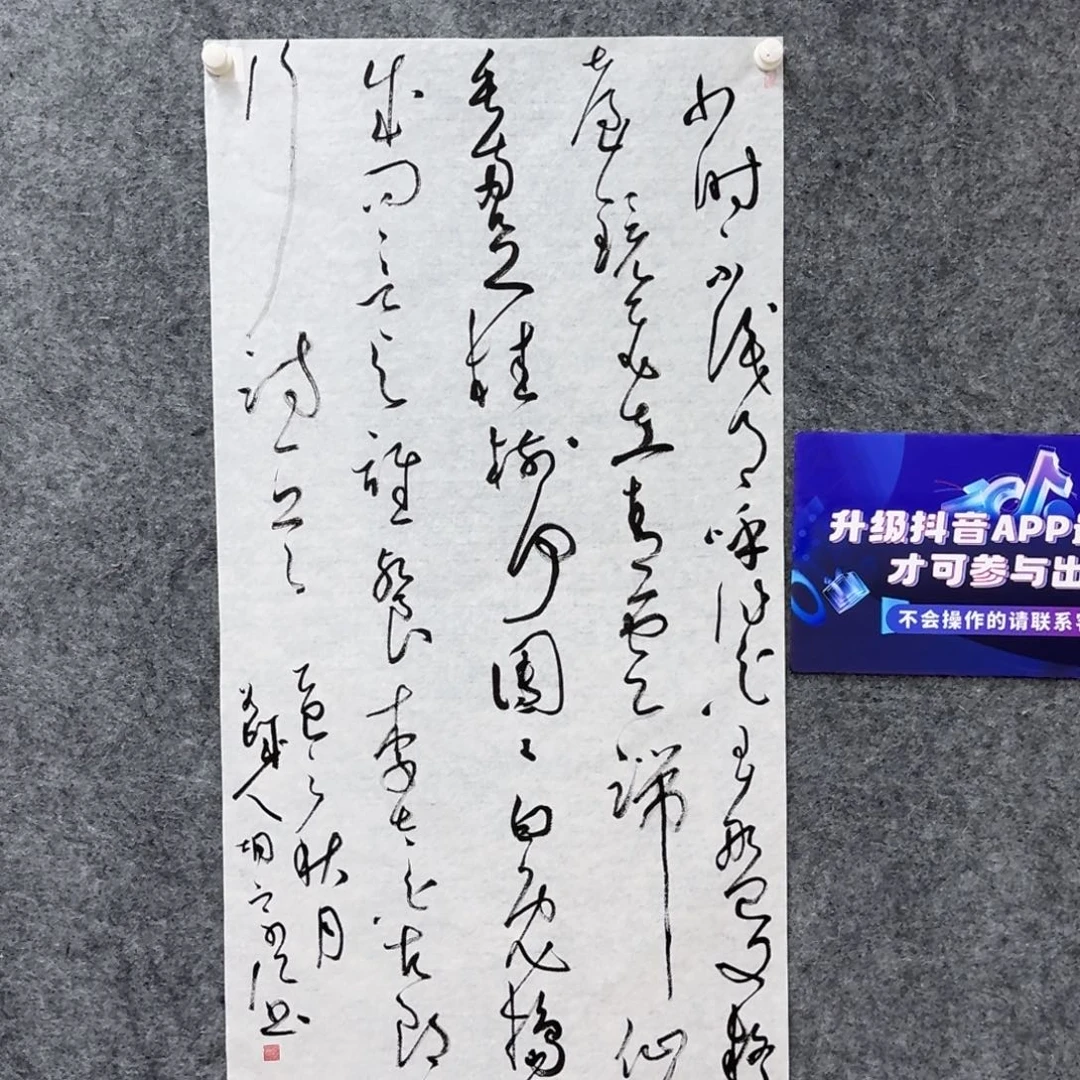 小时不识月呼作白玉盘又疑
臺镜飞在青云端仙
垂两足桂树何團々白兔捣
成问言与谁餐李太白古朗
行诗一首
秋月
升级抖音APP
才可参与出
不会操作的请联系客